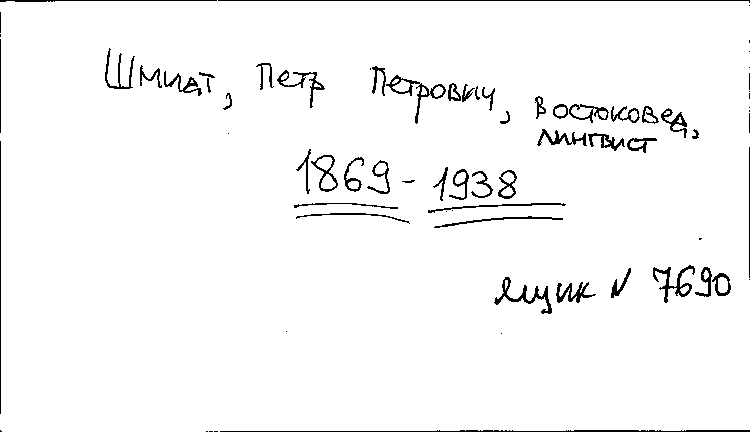 Шмидт, Петр Петрович, востоковед,
лингвист
1869-1938
ящик N 7690